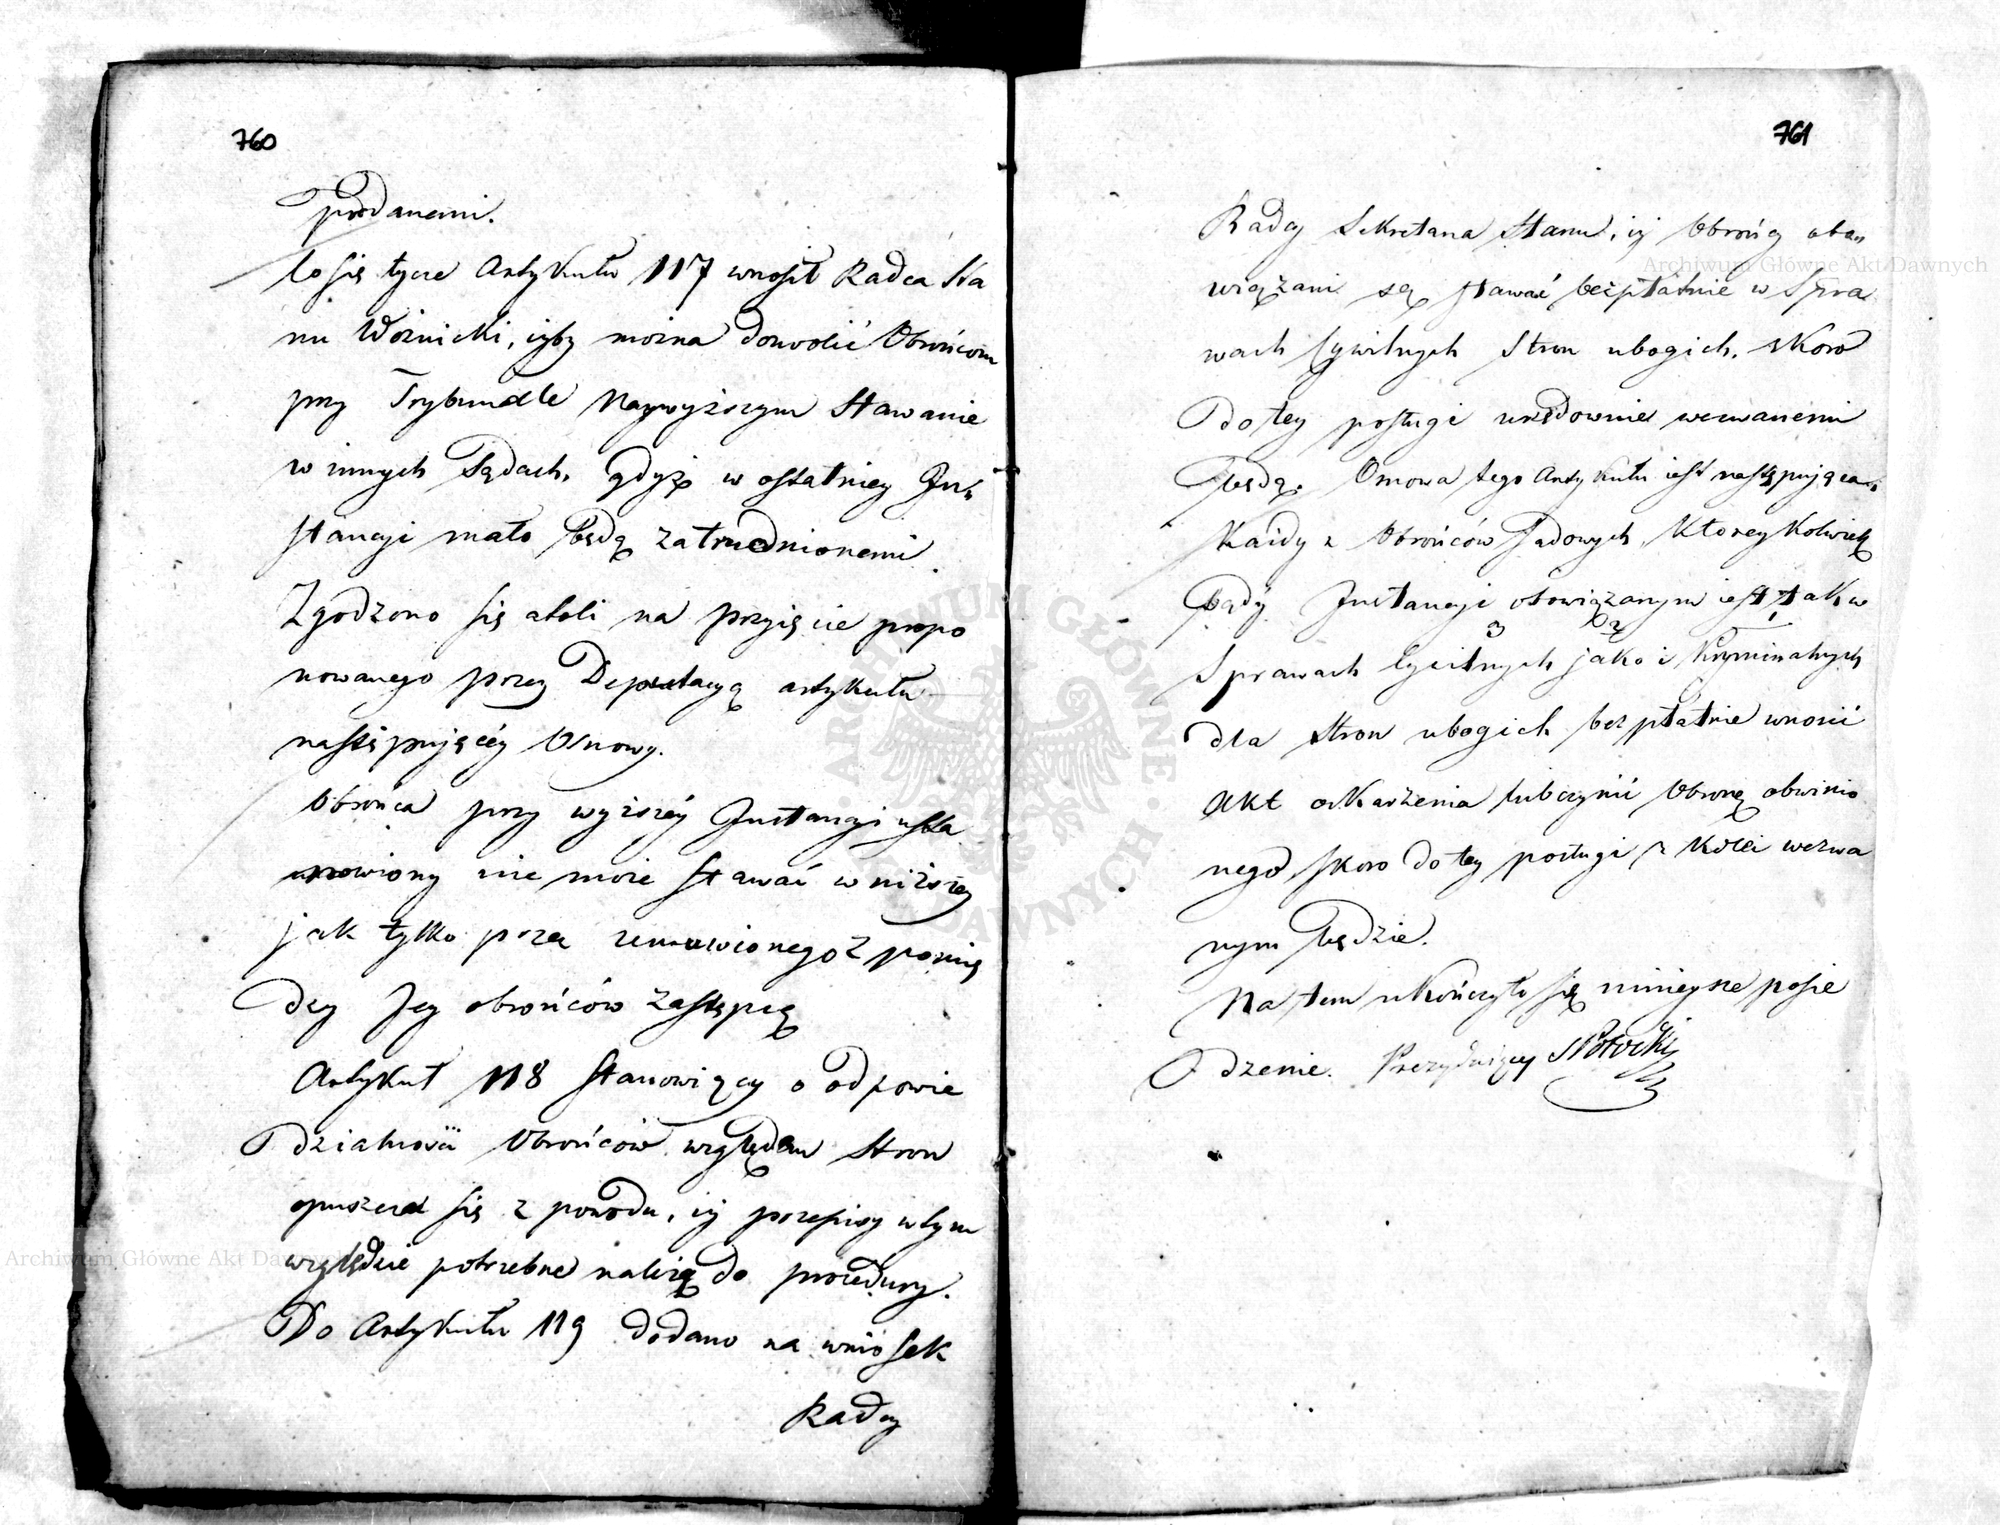 760
podanemi.
Co się tycze Artykułu 117 wnosił Radca Sta
nu Woźnicki, iżby można dozwolić Obrońcom
przy Trybunale Naywyższym Stawanie
w innych Sądach, gdyż w ostatniey In„
stancji mało będą zatrudnionemi.
Zgodzono się atoli na przyięcie propo
nowanego przez Deputacyą artykułu
następuiącéy Osnowy.
Obrońca przy wyższéy Instancji usta
nowiony nie może stawać w niższey
jak tylko przez umowionego z pomię
dzy Jey obrońców Zastępcę
Artykuł 118 stanowiący o odpowie
dzialności Obrońców względem Stron
opuszcza się z powodu, iż przepisy w tym
względzie potrzebne należą do procedury.
Do Artykułu 119 dodano na wniosek
Radcy
761
Radcy Sekretarza Stanu, iż Obrońcy obo„
wiązani są stawać bezpłatnie w Spra
wach Cywilnych Stron ubogich, skoro
do tey posługi urzędownie wezwanemi
będą. Osnowa tego Artykułu iest następuiąca.
Każdy z Obrońców Sądowych, Którey Kolwiek
bądź Instancji obowiązanym iest tak w
3 2 1
Sprawach Cywilnych jako i Kryminalnych
dla Stron ubogich bezpłatnie wnosić
Akt oskarżenia lub czynić Obronę obwinio
nego, skoro do tey posługi z Kolei wezwa
nym będzie.
Na tem ukończyło się ninieysze posie
dzenie. Prezyduiący SPotocki
Archiwum Główne Akt Dawnych
Archiwum Główne Akt Dawnych
ARCHIWUM GŁÓWNE AKT DAWNYCH